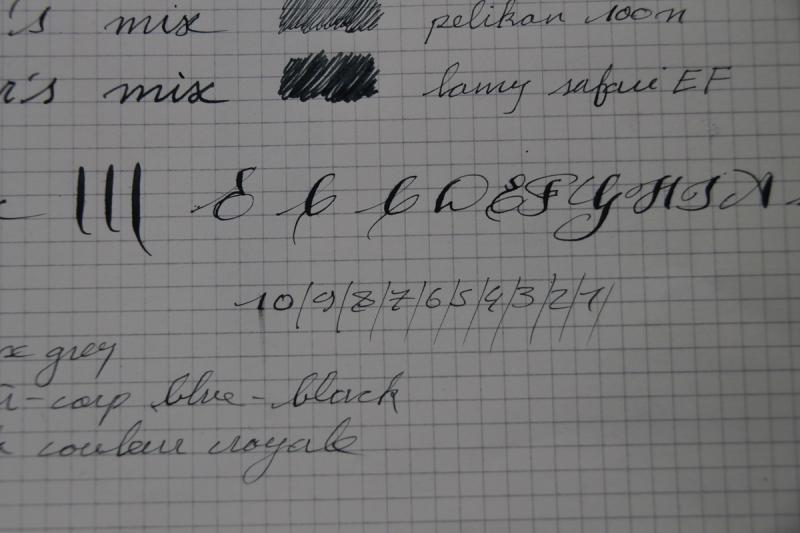 's mix pelikan 100n
r's mix lamy safari EF
III E C C D E F G H I
10/9/8/7/6/5/4/3/2/1/
x grey
-corp blue-black
couleur royale